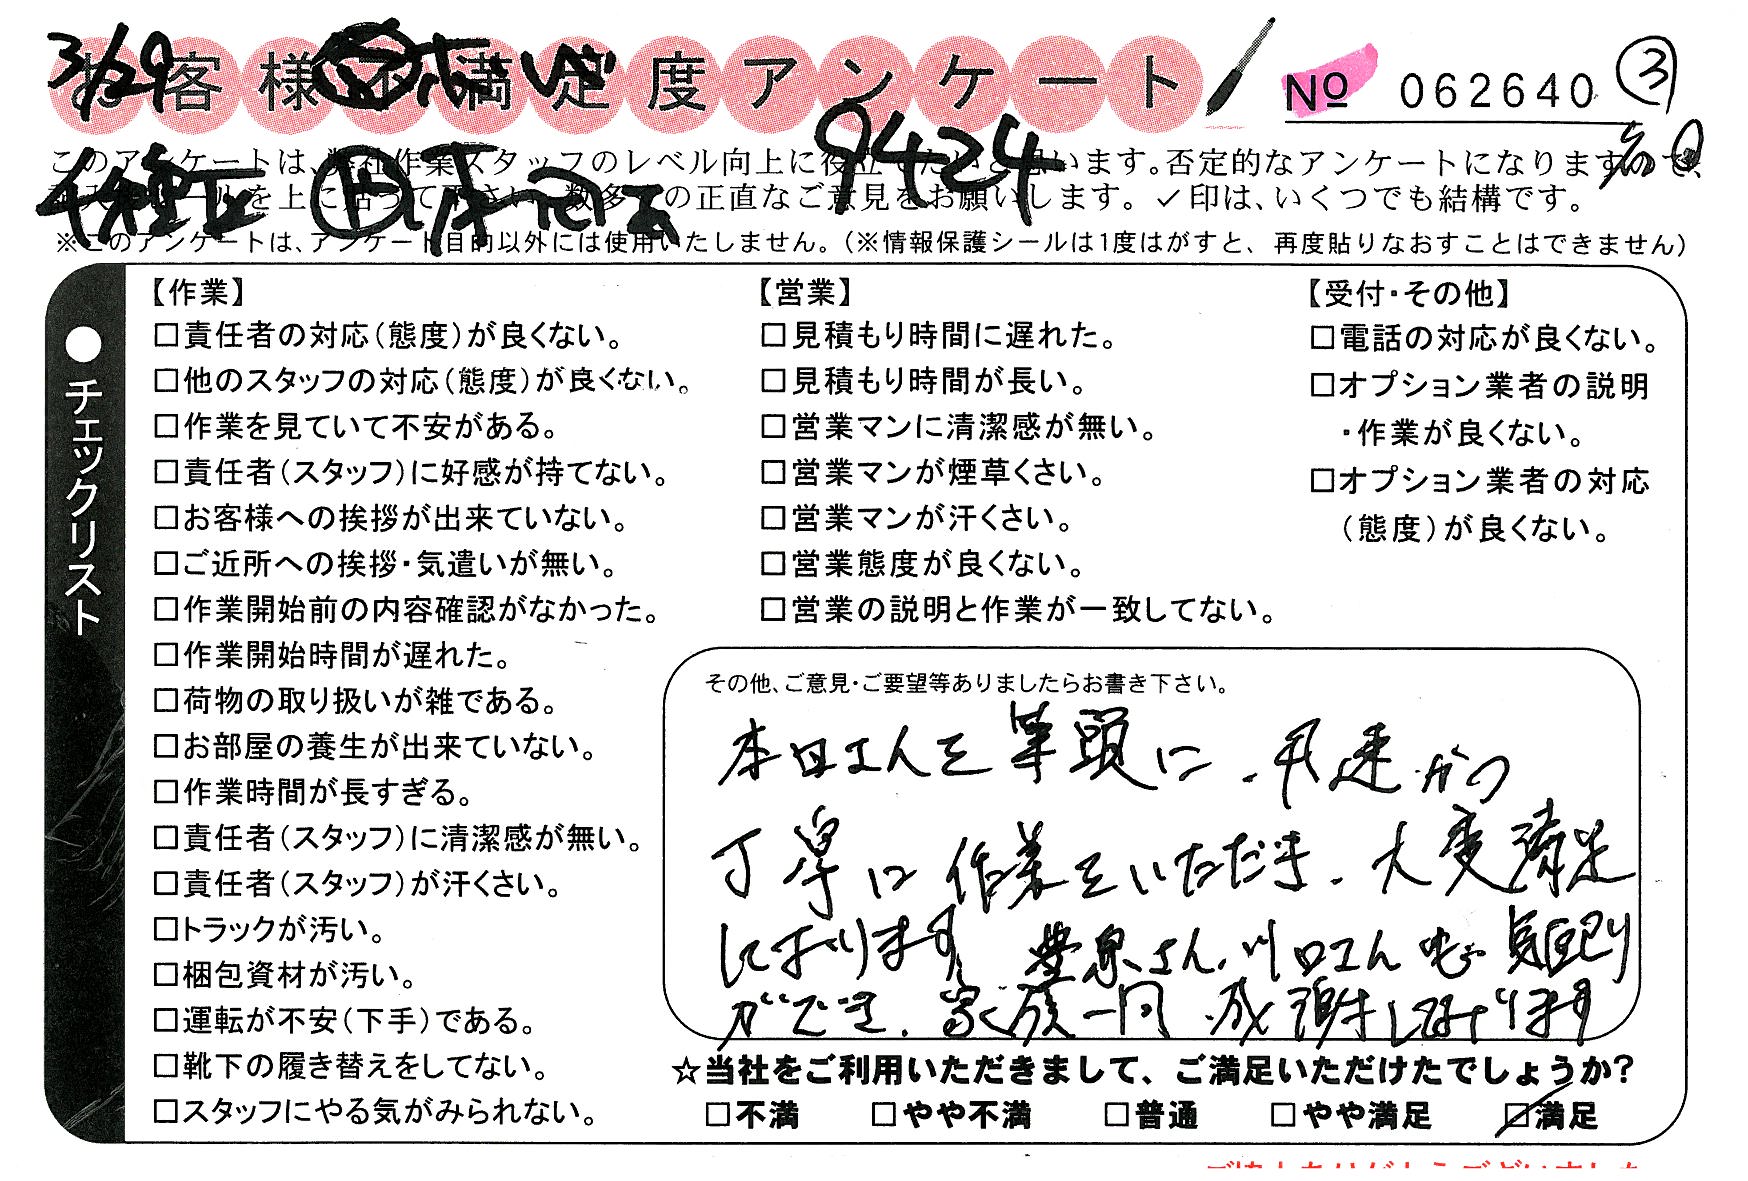 3/29
お客様不満足度アンケート
№ 062640 ③
9424
このアンケートは、弊社作業スタッフのレベル向上に役立てたいと思います。否定的なアンケートになりますので、
記入後シールを上に貼って下さい。数多くの正直なご意見をお願いします。✓印は、いくつでも結構です。
※このアンケートは、アンケート目的以外には使用いたしません。（※情報保護シールは1度はがすと、再度貼りなおすことはできません）
●チェックリスト
【作業】
□責任者の対応（態度）が良くない。
□他のスタッフの対応（態度）が良くない。
□作業を見ていて不安がある。
□責任者（スタッフ）に好感が持てない。
□お客様への挨拶が出来ていない。
□ご近所への挨拶・気遣いが無い。
□作業開始前の内容確認がなかった。
□作業開始時間が遅れた。
□荷物の取り扱いが雑である。
□お部屋の養生が出来ていない。
□作業時間が長すぎる。
□責任者（スタッフ）に清潔感が無い。
□責任者（スタッフ）が汗くさい。
□トラックが汚い。
□梱包資材が汚い。
□運転が不安（下手）である。
□靴下の履き替えをしてない。
□スタッフにやる気がみられない。
【営業】
□見積もり時間に遅れた。
□見積もり時間が長い。
□営業マンに清潔感が無い。
□営業マンが煙草くさい。
□営業マンが汗くさい。
□営業態度が良くない。
□営業の説明と作業が一致してない。
【受付・その他】
□電話の対応が良くない。
□オプション業者の説明
・作業が良くない。
□オプション業者の対応
（態度）が良くない。
その他、ご意見・ご要望等ありましたらお書き下さい。
本田さんを筆頭に、迅速かつ
丁寧に作業をいただき、大変満足
しております。豊泉さん、川口さんも気配り
ができ、家族一同、感謝しております
☆当社をご利用いただきまして、ご満足いただけたでしょうか？
□不満 □やや不満 □普通 □やや満足 ☑満足